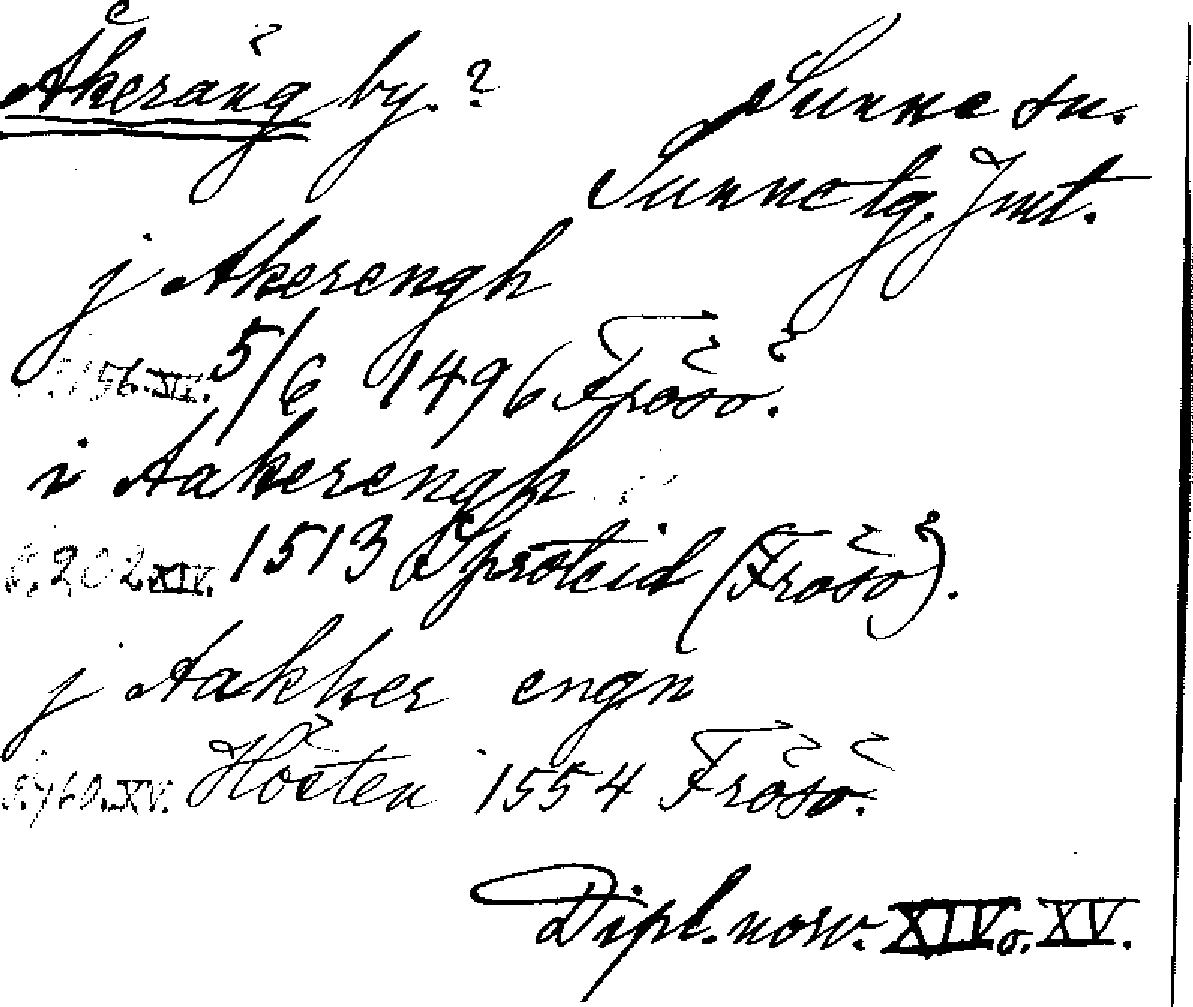 Åkeräng by.? Sunne sn.
Sunne tg. Jmt.
j Akerengh
s. 156. XIV. 5/6 1496 Frösö.
i Aakerengh
s. 202 XIV. 1513 Sproteid (Frösö).
j Aakher engn
XV. Hösten 1554 Frösö.
Dipl. norv. XIV o. XV.